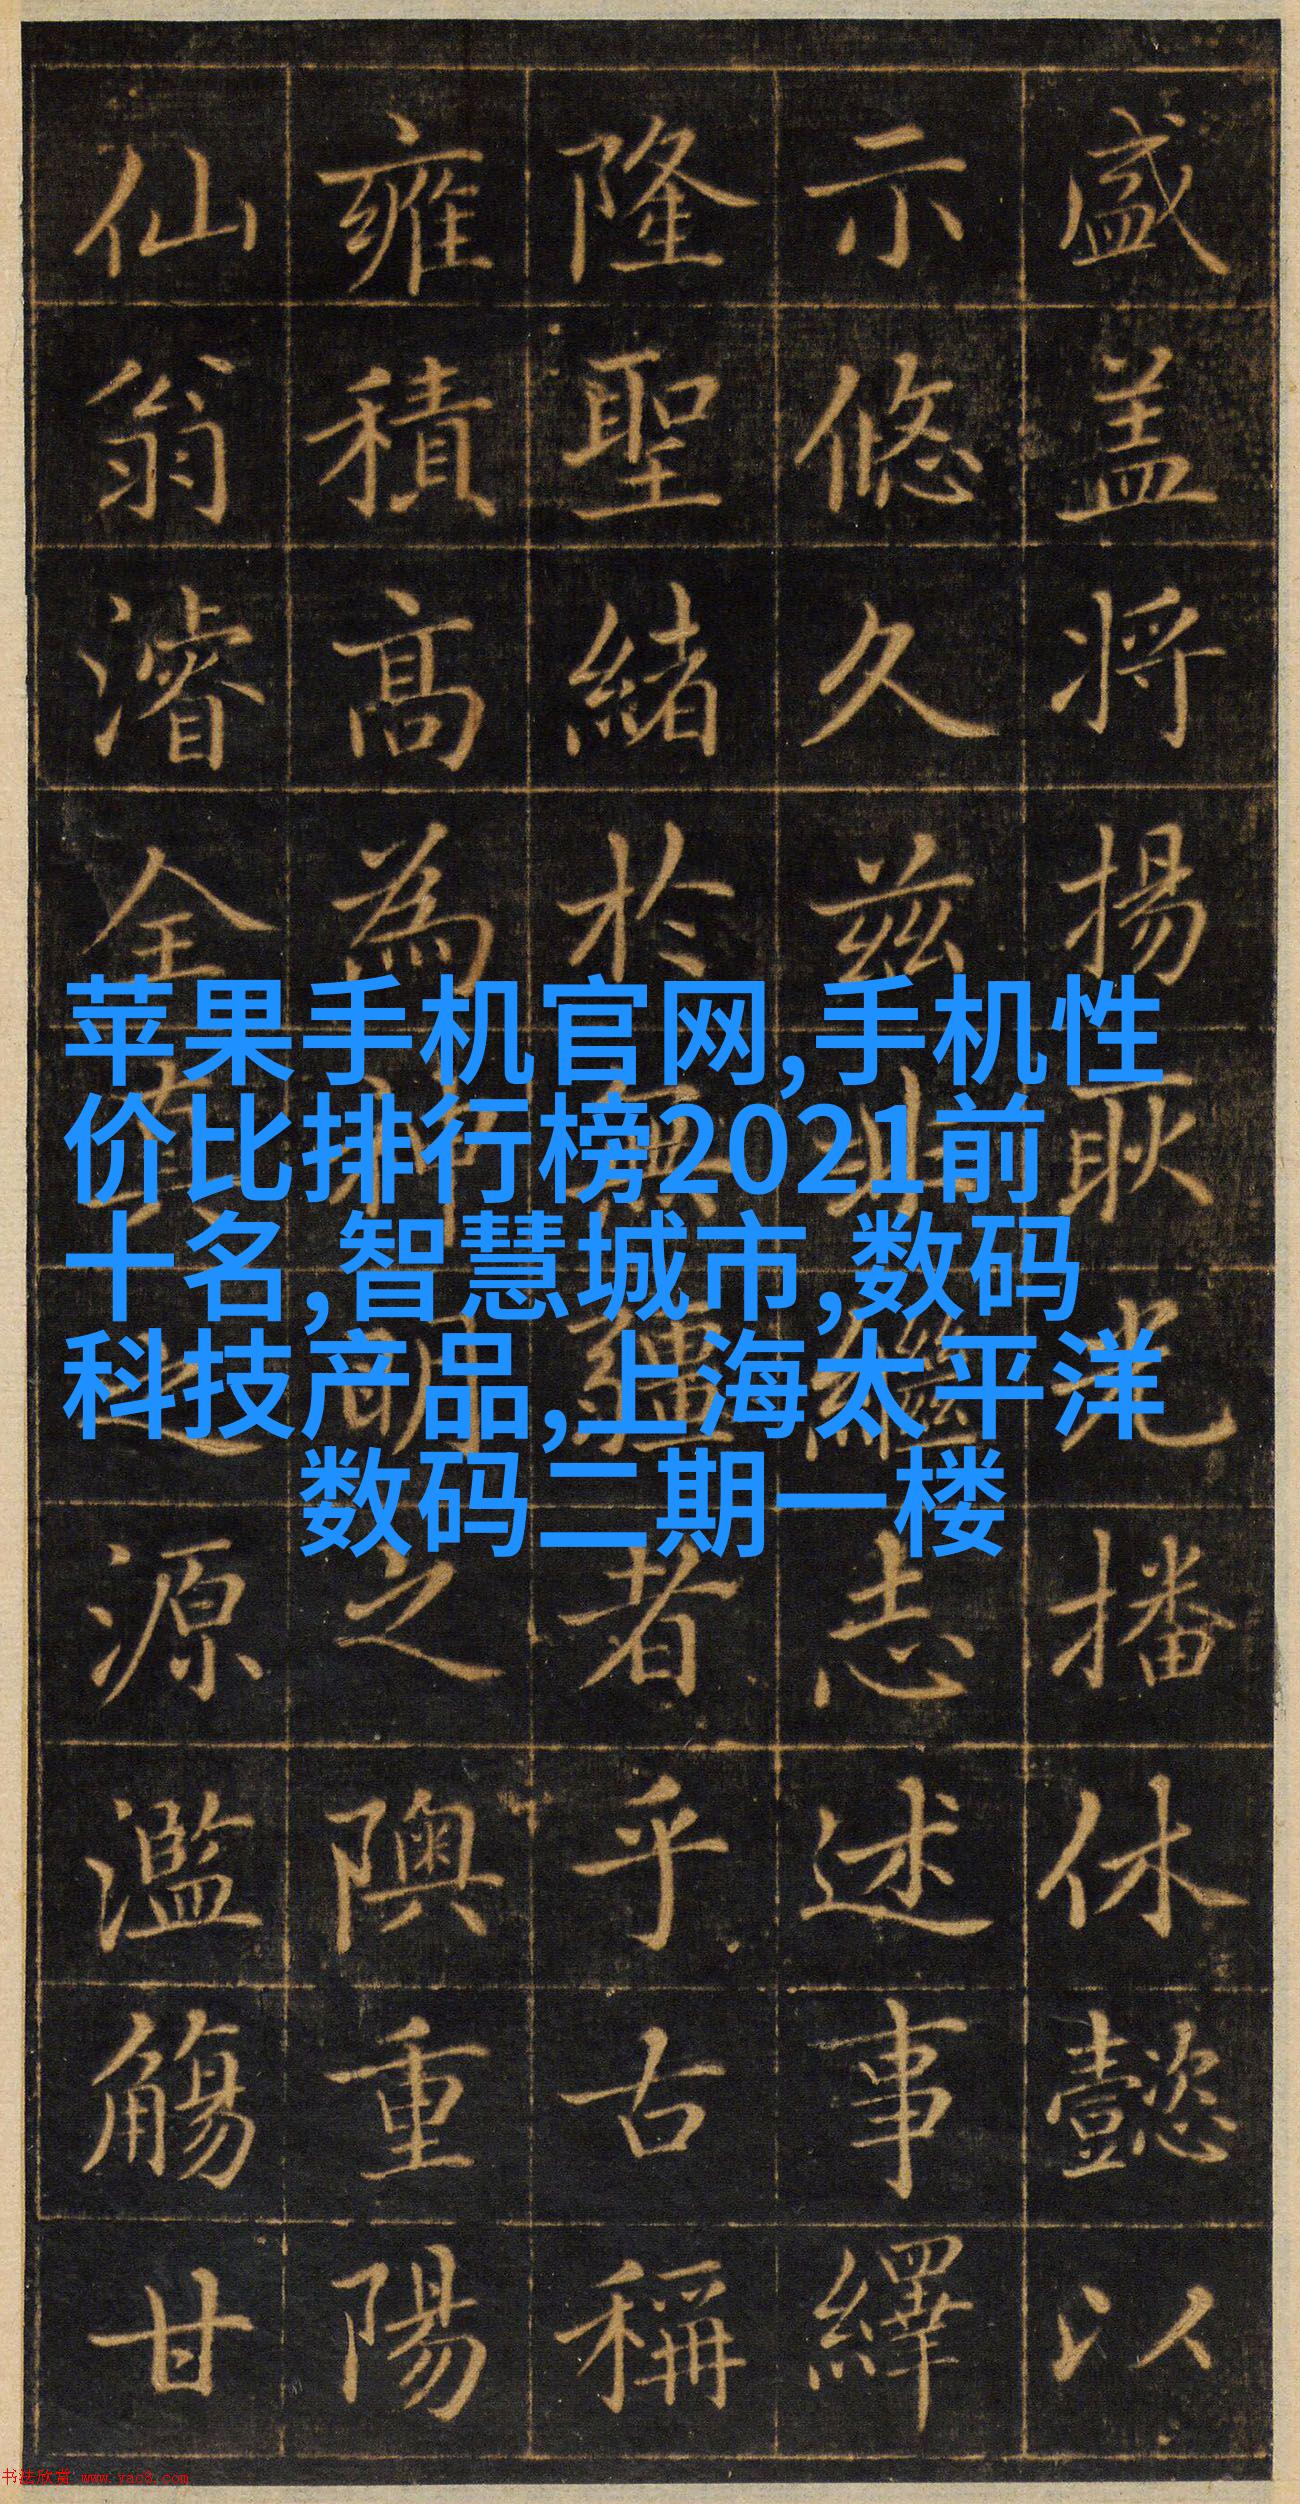 盛盖将揚耿光播休懿以
示悠久兹非繼志述事繹
隆聖緒於無疆者乎古稱
雍積高為神明之隩重陽
仙翁濬全真之源濫觴甘
苹果手机官网,手机性
价比排行榜2021前
十名,智慧城市,数码
科技产品,上海太平洋
数码二期一楼
书法欣赏 www.yac8.com